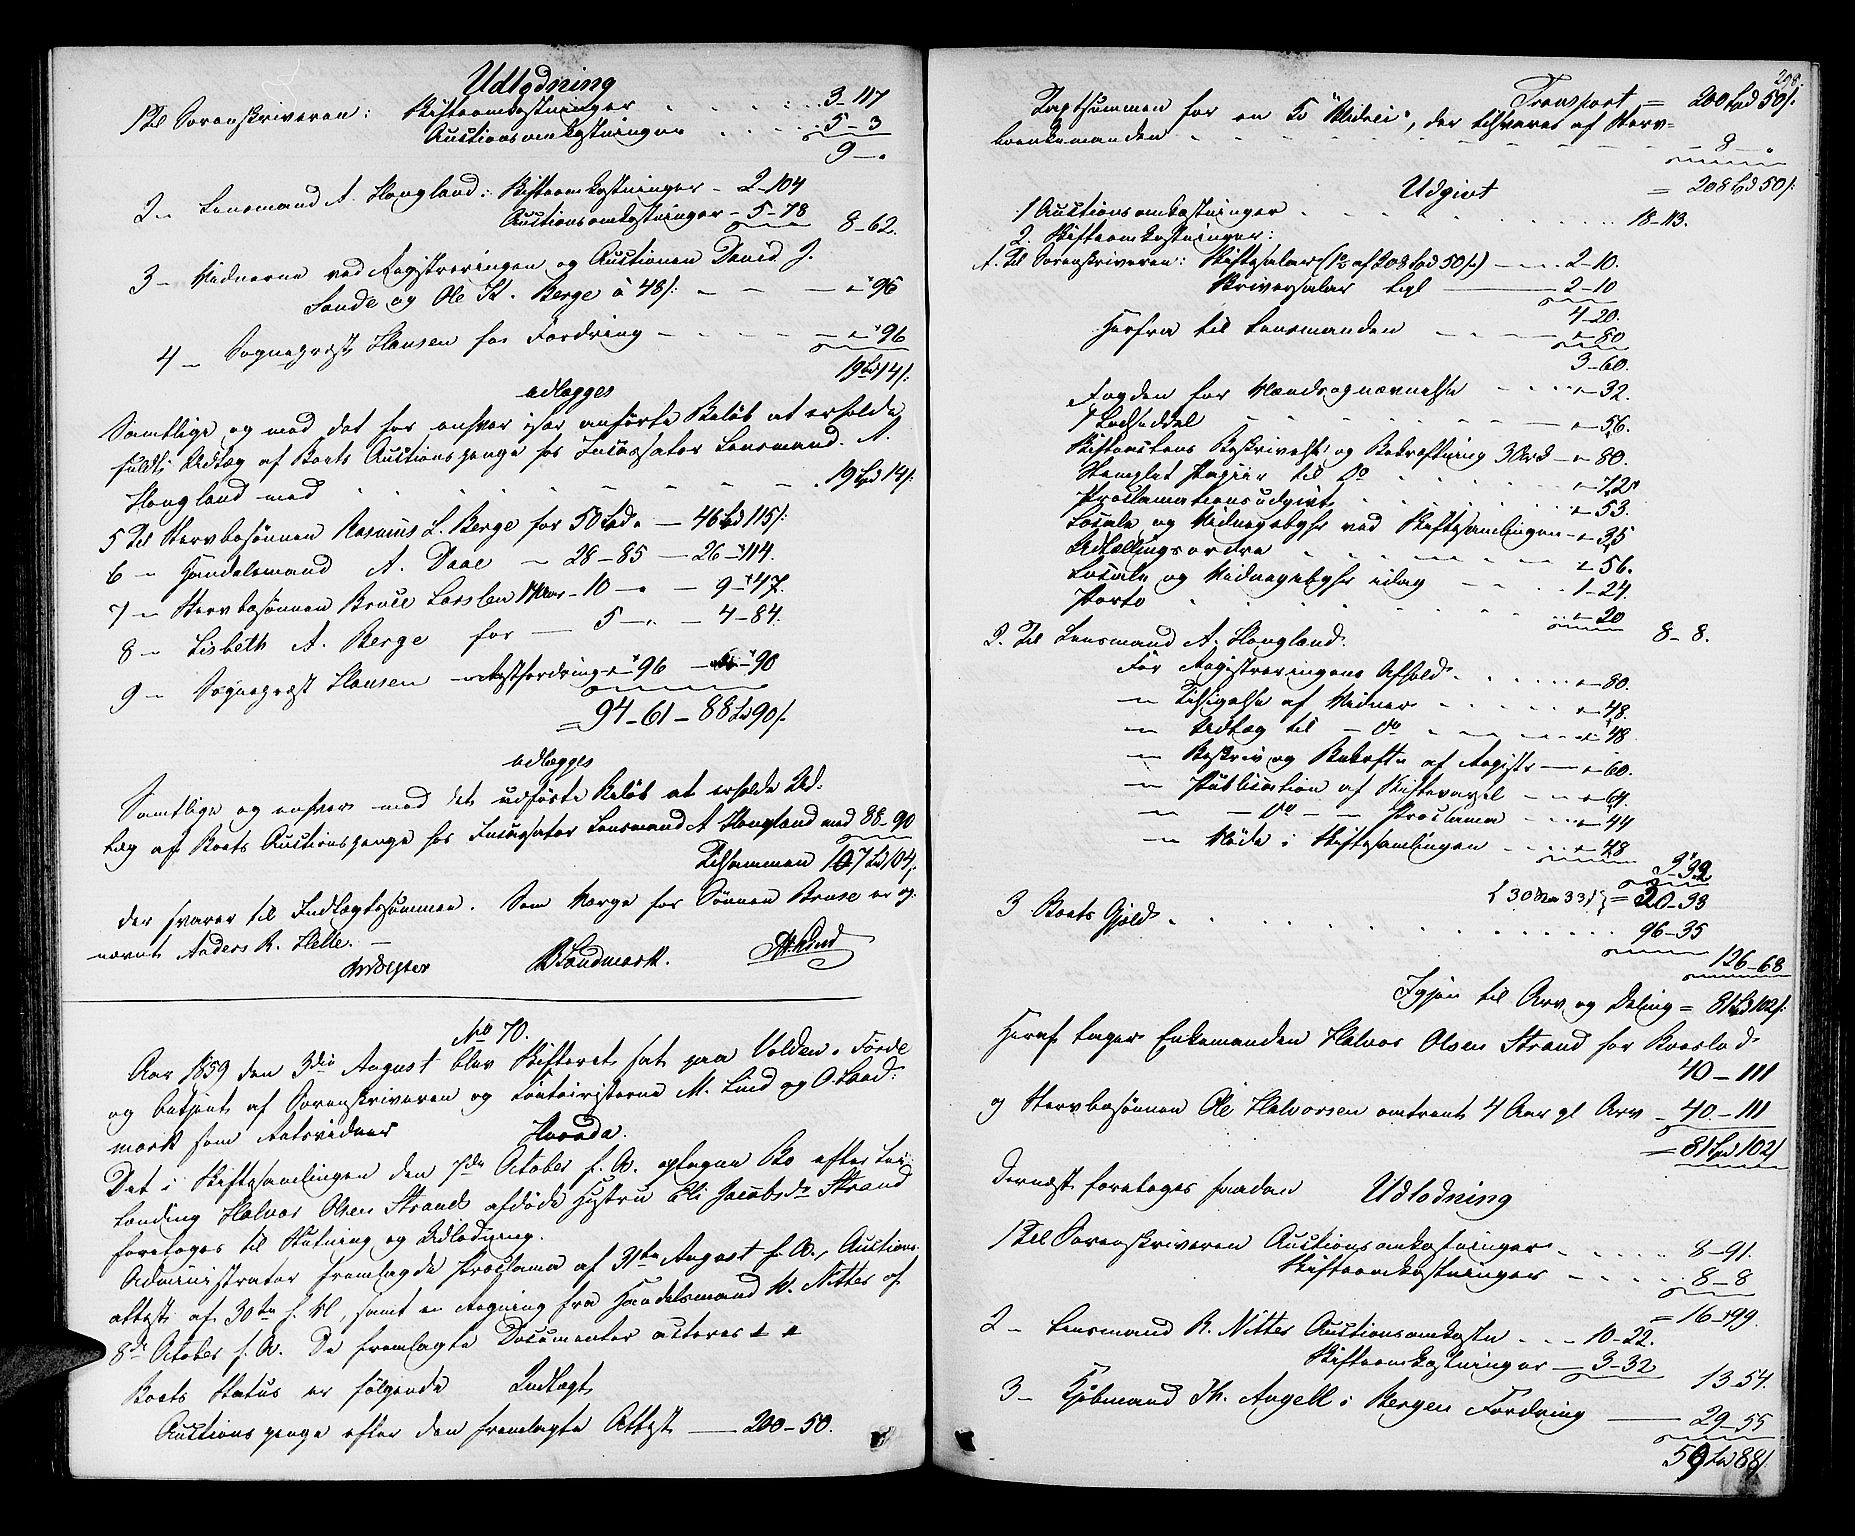 Udlodning
1 Til Sorenskriveren: Skifteomkostninger 3-117
Auctionsomkostninger 5-3
9-"
2 " Lensmand A. Hougland: Skifteomkostninger - 2-104
Auctionsomkostninger - 5-78 8-62.
3 - Vidnerne ved Registreringen og Auctionen David J.
Sande og Ole K. Berge à 48/: "-96
4 - Sognepræst Hansen for Fordring "-96
19 Spd 14/:
udlægges
Samtlige og med det for enhver især anførte Beløb at erholde
fuldt Udlæg af Boets Auctionspenge hos Incassator Lensmand A.
Hougland med 19 Spd 14/:
5 Til Stervbosønnen Rasmus L. Berge for 50 Spd " - 46 Spd 115/:
6 - Handelsmand A. Daae - 28-85 - 26-114.
7 - Stervbosønnen Bruse Larssen 10 - " - 9-47.
8 - Lisbeth A. Berge for 5 - " - 4-84.
9 - Sognepræst Hansen Restfordring "-96 "-90
= 94-61-88 Spd 90/:
udlægges
Samtlige og enhver med det udførte Beløb at erholde Ud-
læg af Boets Auctionspenge hos Incassator Lensmand A Hougland med 88-90
Tilsammen 107 Spd 104/:
der svarer til Indtægtssummen. Som Værge for Sønnen Bruse er op-
nævnt Anders R. Helle. -
O Landmark. M. Lind
No 70.
Aar 1859 den 3die August blev Skifteret sat paa Volden i Førde
og betjent af Sorenskriveren og Contoiristerne M. Lind og O. Land-
mark som Retsvidner Hvorda.
Det i Skiftesamlingen den 7de October f. A. optagne Bo efter Lei-
lænding Halvor Olsen Strand afdøde Hustru Eli Jacobsdr Strand
foretoges til Slutning og Udlodning.
Administrator fremlagde Proclama af 31te August f. A., Auctions-
attest af 30te f. M., samt en Regning fra Handelsmand W. Nitter af
8de October f. A. De fremlagte Documenter acteres
Boets Status er følgende Indtægt
Auctionspenge efter den fremlagte Attest 200-50.
208
Transport = 200 Spd 50/:
Taxtsummen for en Ko "Vidlei", der tilsvares af Sterv-
boenkemanden 8 - "
= 208 Spd 50/:
Udgivt
1 Auctionsomkostninger 18-113.
2. Skifteomkostninger:
1. Til Sorenskriveren: Skiftesalær (1% af 208 Spd 50/:) 2-10.
Skriversalær Ligl 2-10
4-20.
Herfra til Lensmanden "-80
3-60.
Fogden for Mændsopnævnelse "-32.
1 Lodseddel "-56.
Skifteactens Beskrivelse og Bekræftning 3 Ark "-80.
Stemplet Papir til Do "-72.
Proclamationsudgivt "-53.
Locale og Vidnegebyhr ved Skiftesamlingen "-35
Udtællingsordre "-56.
Locale og Vidnegebyhr idag 1-24.
Porto "-20
8-8.
2. Til Lensmand A. Hougland.
For Registreringens Afhold "-80.
" Tilsigelse af Vidner "-48.
" Udlæg til - Do "-48
" Beskriv og Bekræftn af Registr "-60.
" Publication af Skiftevarsel "-64.
" - Do - Proclama "-44
" Møde i Skiftesamlingen "-48
3-32
= 30-33
3 Boets Gjeld 96-35
126-68
Igjen til Arv og Deling = 81 Spd 102/:
Heraf tager Enkemanden Halvor Olsen Strand for Boeslod
40-111
og Stervbosønnen Ole Halvorsen omtrent 4 Aar gl Arv 40-111
= 81 Spd 102/
Dernæst foretoges saadan Udlodning
1 Til Sorenskriveren Auctionsomkostninger 8-91.
Skifteomkostninger 8-8
= 16-99.
2 - Lensmand R. Nitter Auctionsomkostn 10-22.
Skifteomkostninger 3-32 13-54.
3 - Kjøbmand Th. Angell i Bergen Fordring 29-55
59 Spd 88/